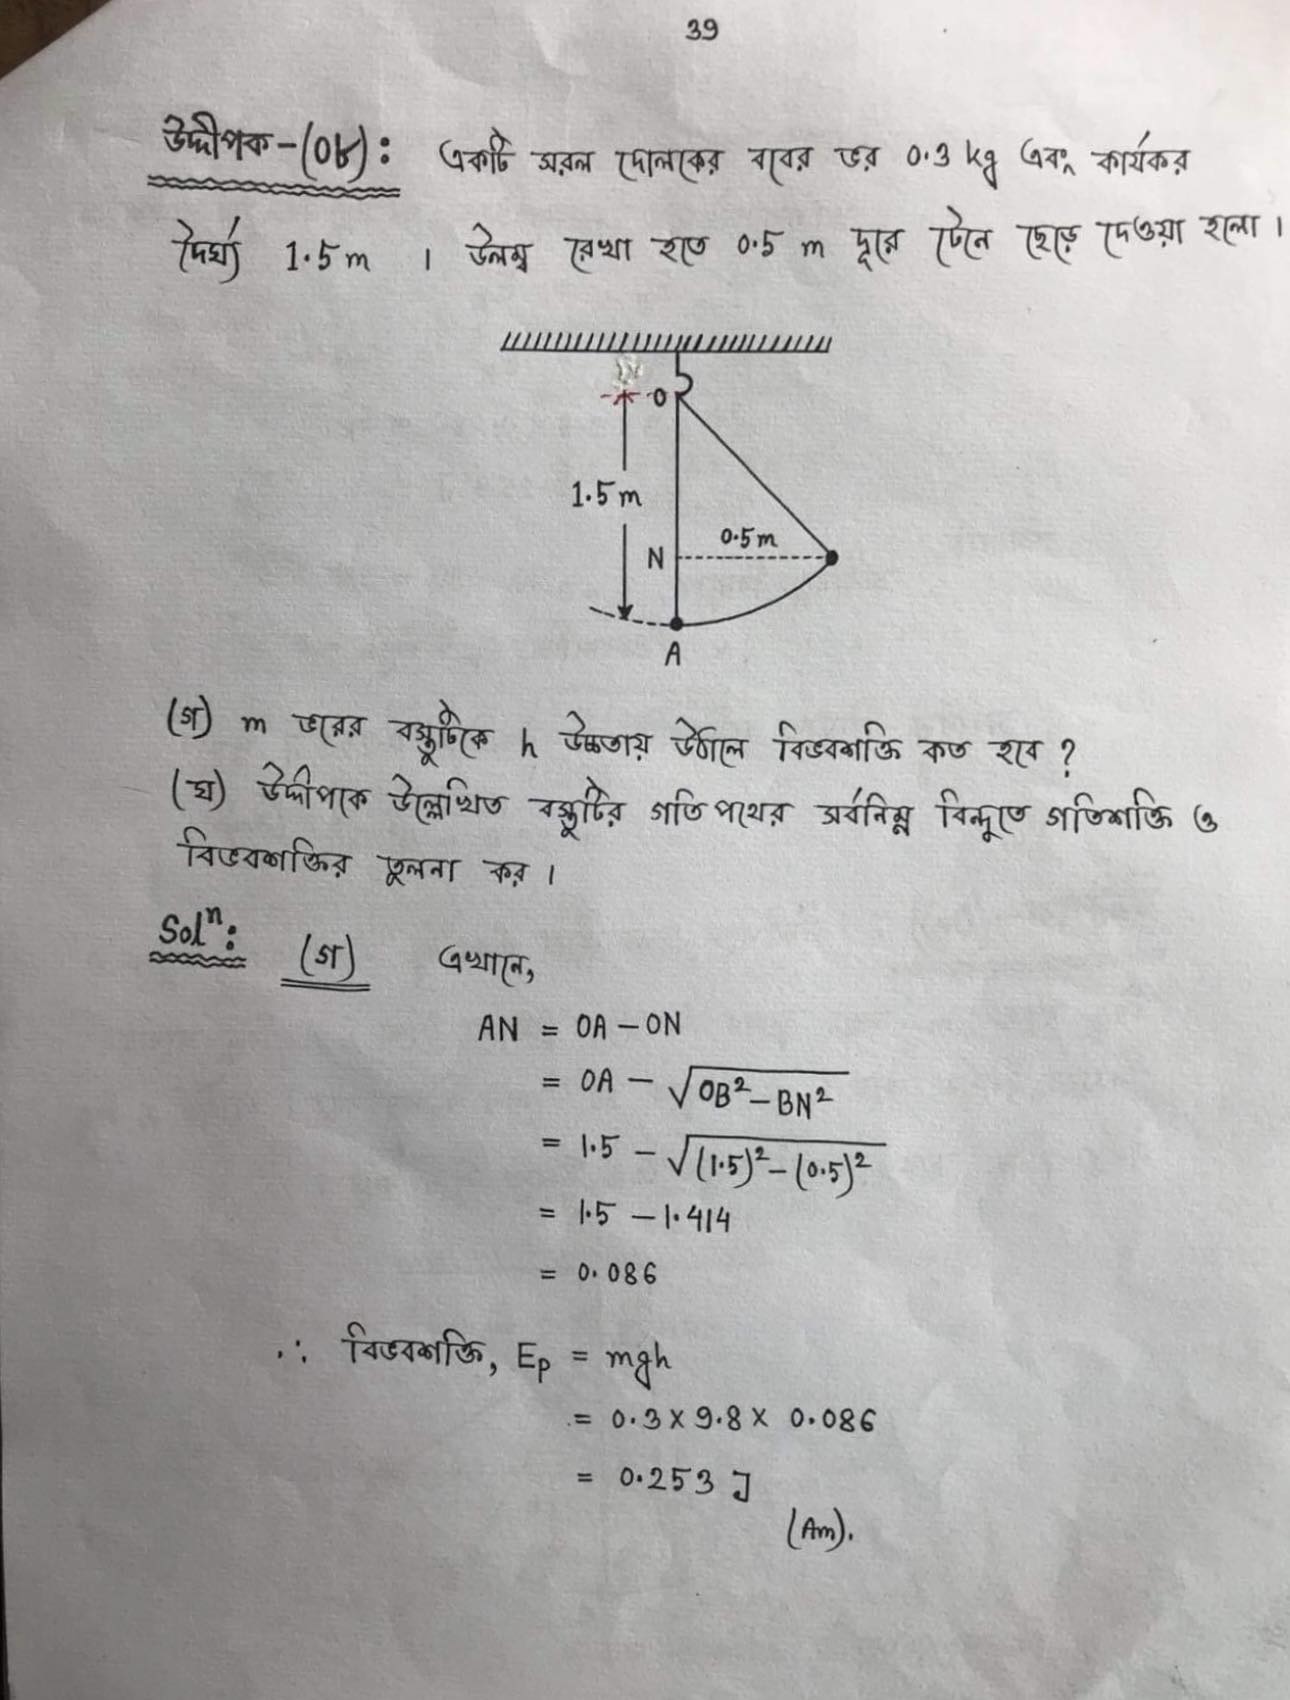 39
উদ্দীপক-(০৮): একটি সরল দোলকের ববের ভর 0.3 kg এবং কার্যকর
দৈর্ঘ্য 1.5 m । উলম্ব রেখা হতে 0.5 m দূরে টেনে ছেড়ে দেওয়া হলো ।
O
1.5 m
0.5 m
N
A
(গ) m ভরের বস্তুটিকে h উচ্চতায় উঠালে বিভবশক্তি কত হবে ?
(ঘ) উদ্দীপকে উল্লেখিত বস্তুটির গতিপথের সর্বনিম্ন বিন্দুতে গতিশক্তি ও
বিভবশক্তির তুলনা কর ।
Solⁿ: (গ) এখানে,
AN = OA - ON
= OA - √OB² - BN²
= 1.5 - √(1.5)² - (0.5)²
= 1.5 - 1.414
= 0.086
∴ বিভবশক্তি, Ep = mgh
= 0.3 × 9.8 × 0.086
= 0.253 J
(Am).